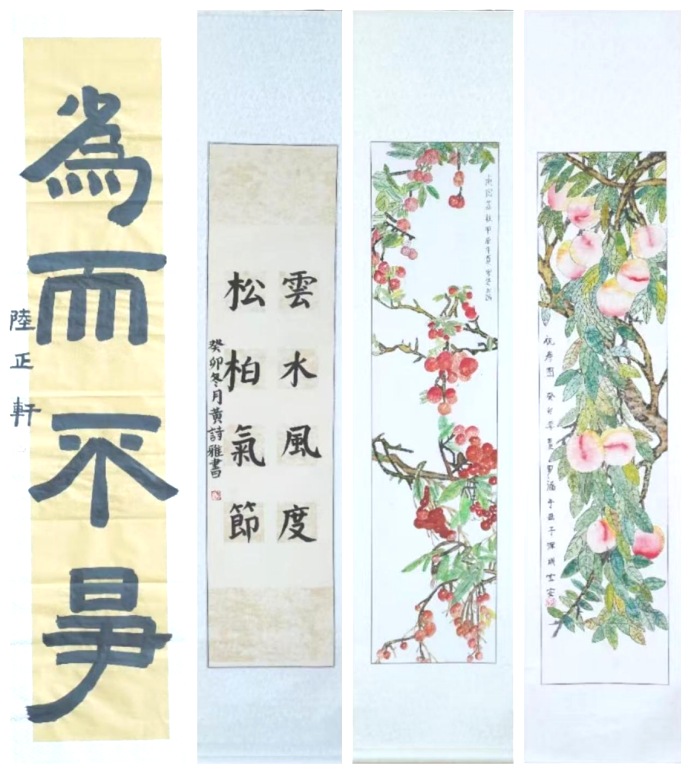 為而不爭
陸正軒
雲水風度
松柏氣節
癸卯冬月黃詩雅書
祝壽圖 癸卯年